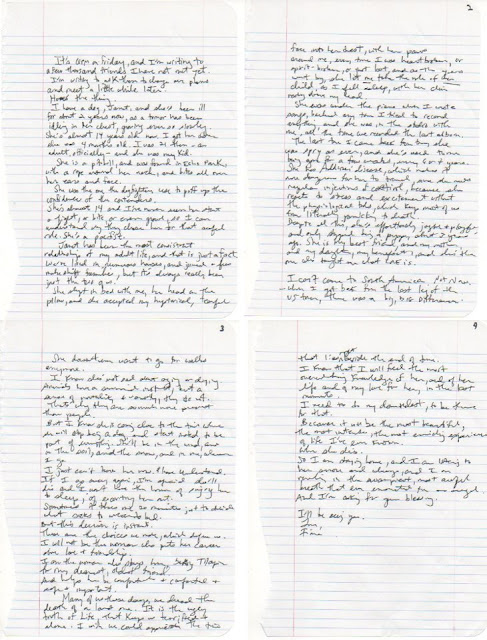 It's 6pm on Friday, and I'm writing to
a few thousand friends I have not met yet.
I'm writing to ask them to change our plans
and meet a little while later.
Here's the thing.
I have a dog, Janet, and she's been ill
for about 2 years now, as a tumor has been
idling in her chest, growing ever so slowly.
She's almost 14 years old now. I got her when
she was 4 months old. I was 21 then - an
adult, officially - and she was my kid.
She is a pitbull, and was found in Echo Park,
with a rope around her neck, and bites all over
her ears and face.
She was the one the dogfighters use to puff up the
confidence of the contenders.
She's almost 14 and I've never seen her start
a fight, or bite, or even growl, so I can
understand why they chose her for that awful
role. She's a pacifist.
Janet has been the most consistent
relationship of my adult life, and that is just a fact.
We've lived in numerous houses, and joined a few
makeshift families, but it's always really been
just the two of us.
She slept in bed with me, her head on the
pillow, and she accepted my hysterical, tearful
2
face into her chest, with her paws
around me, every time I was heartbroken, or
spirit-broken, or just lost, and as the years
went by, she let me take the role of her
child, as I fell asleep, with her chin
resting above my head.
She was under the piano when I wrote
songs, barked any time I tried to record
anything, and she was in the studio with
me, all the time we recorded the last album.
The last time I came back from tour, she
was spry as ever, and she's used to me
being gone for a few weeks, every 6 or 7 years.
She has Addison's disease, which makes it
more dangerous for her to travel, since she needs
regular injections of Cortisol, because she
reacts to stress and excitement without
the physiological tools which keep most of us
from literally panicking to death.
Despite all this, she's effortlessly joyful & playful,
and only stopped being a puppy about 3 years
ago. She is my best friend, and my mother,
and my daughter, my benefactor, and she's the
one who taught me what love is.
I can't come to South America. Not now.
When I got back from the last leg of the
US tour, there was a big, big difference.
3
She doesn't even want to go for walks
anymore.
I know she's not sad about aging or dying.
Animals have a survival instinct, but a
sense of mortality & vanity, they do not.
That's why they are so much more present
than people.
But I know she is coming close to the time where
she will stop being a dog, and start instead to be
part of everything. She'll be in the wind, and
in the soil, and the snow, and in me, wherever
I go.
I just can't leave her now, please understand.
If I go away again, I'm afraid she'll
die and I won't have the honor of singing her
to sleep, of escorting her out.
Sometimes it takes me 20 minutes just to decide
what socks to wear to bed.
But this decision is instant.
These are the choices we make, which define us.
I will not be the woman who puts her career
ahead of love & friendship.
I am the woman who stays home, baking Tilapia
for my dearest, oldest friend.
And helps her be comfortable & comforted &
safe & important.
Many of us these days, we dread the
death of a loved one. It is the ugly
truth of Life, that keeps us terrified &
alone. I wish we could appreciate the time
4
that lies beside the end of time.
I know that I will feel the most
overwhelming knowledge of her, and of her
life and of my love for her, in the last
moments.
I need to do my damnedest, to be there
for that.
Because it will be the most beautiful,
the most intense, the most enriching experience
of life I've ever known.
When she dies.
So I am staying home, and I am listening to
her snore and wheeze, and I am
revelling in the swampiest, most awful
breath that ever emanated from an angel.
And I'm asking for your blessing.
I'll be seeing you.
Love,
Fiona